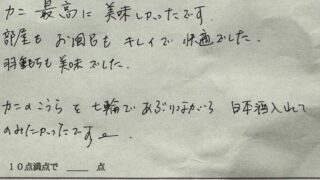 カニ 最高に 美味しかったです.
部屋も お風呂も キレイで 快適でした.
羽もちも 美味でした.
カニのこうらを 七輪で あぶりながら 日本酒入れて
のみたかったです.
10点満点で ____ 点